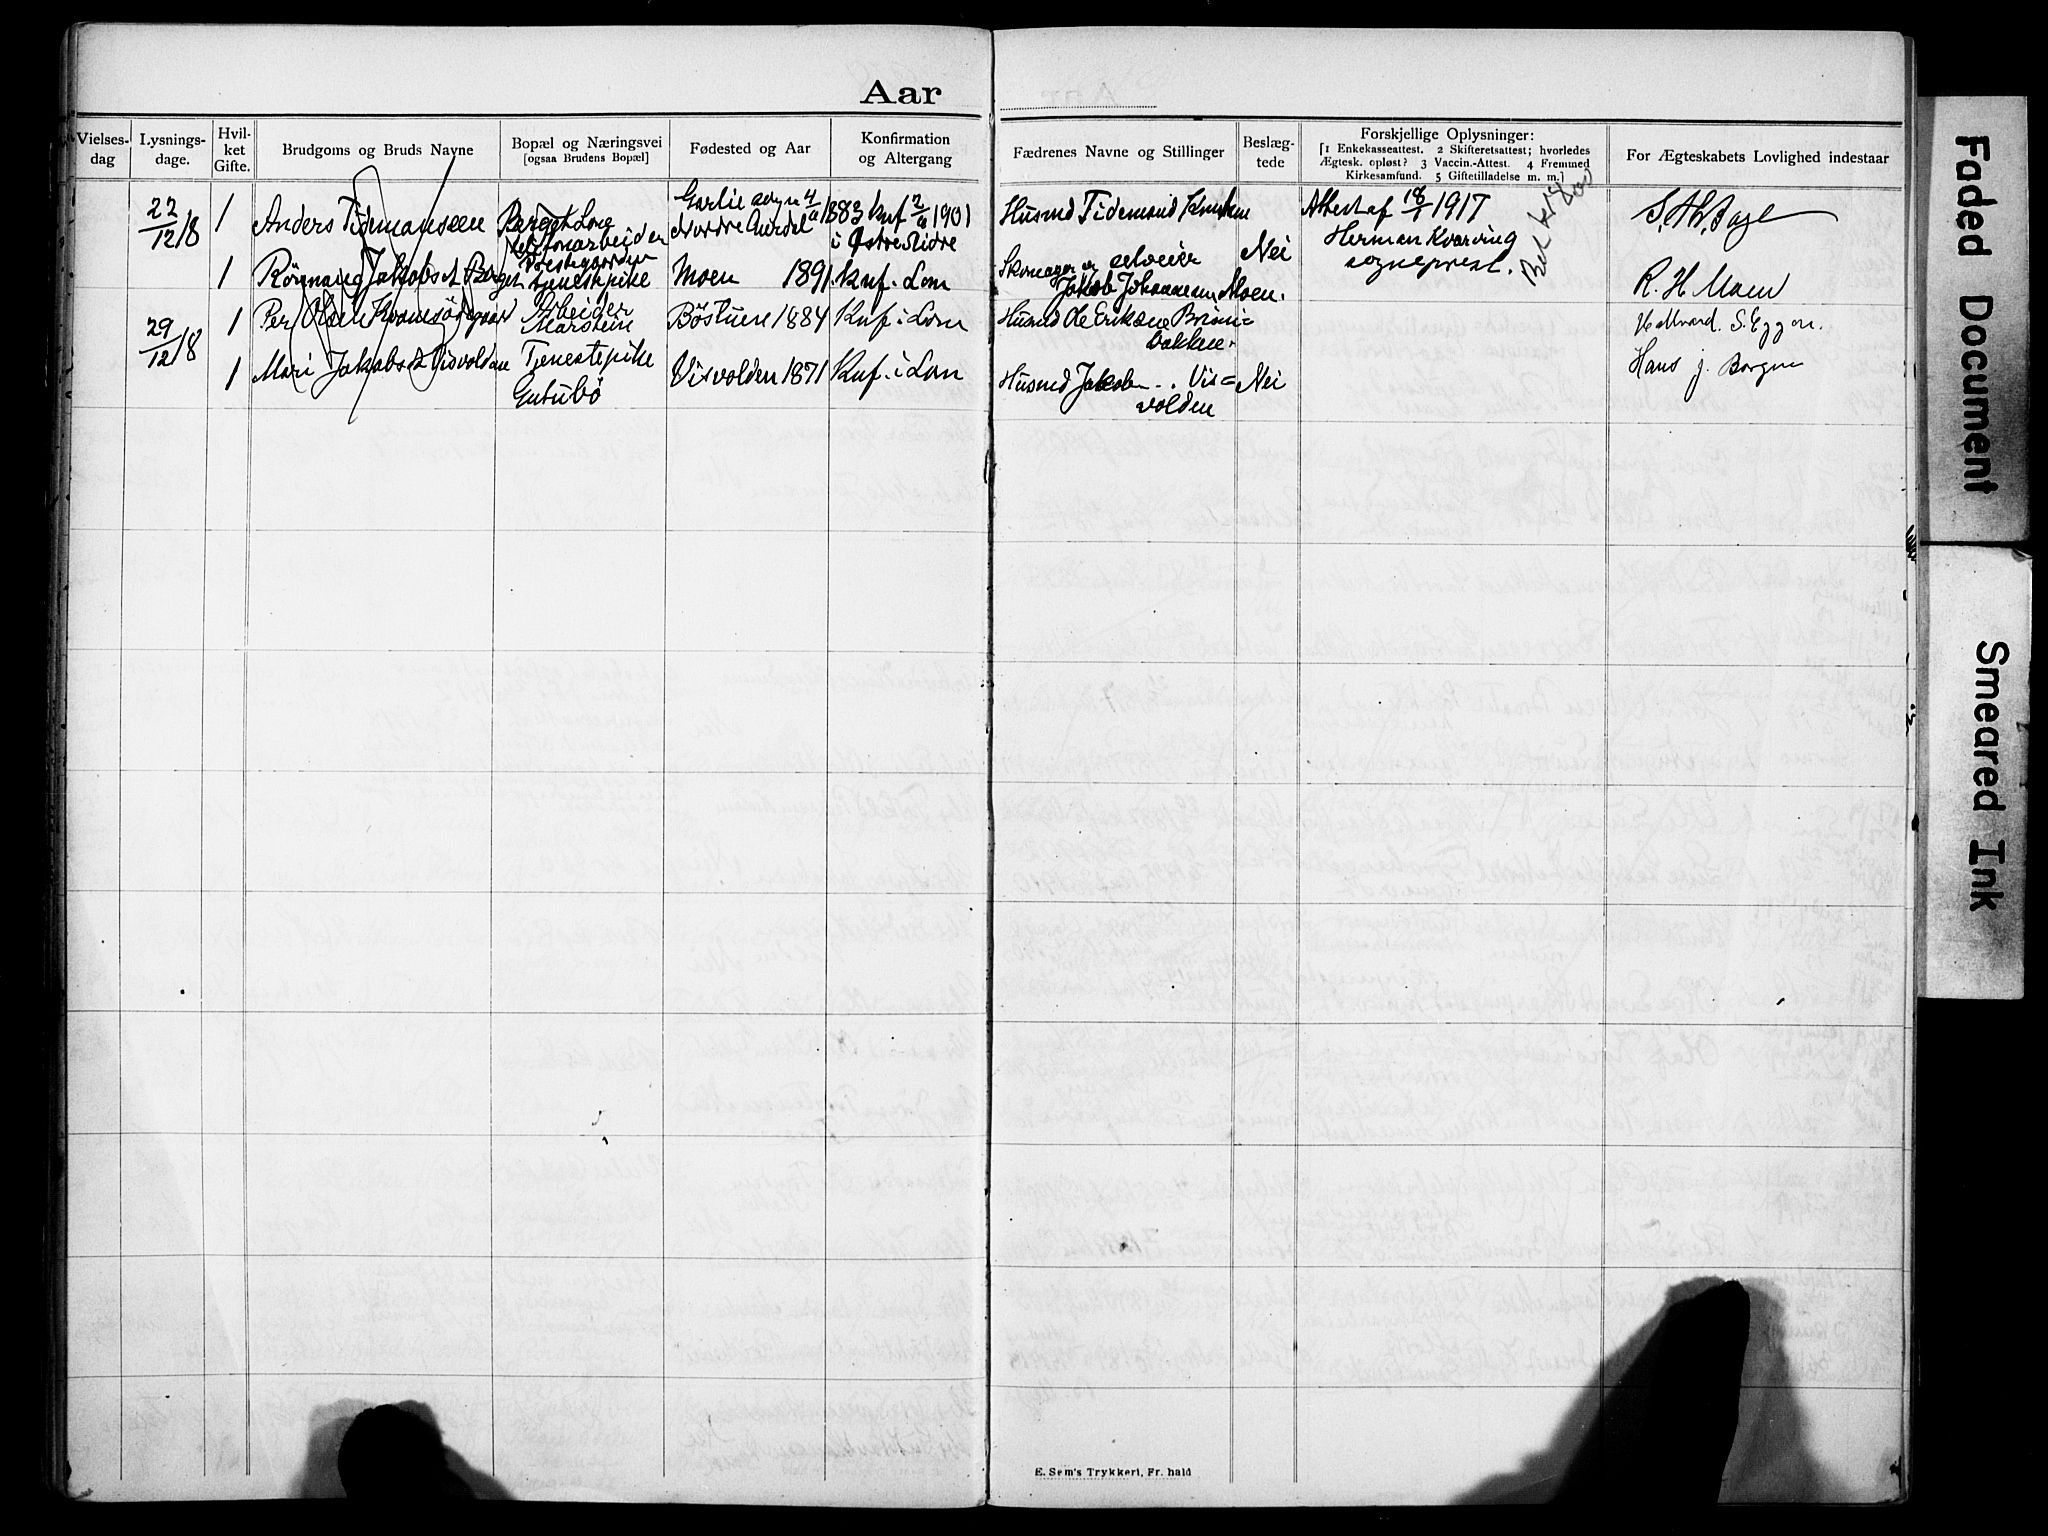 Aar
Aar
Vielses-
dag
Lysnings-
dage.
Hvil-
ket
Gifte.
Brudgoms og Bruds Navne
Bopæl og Næringsvei
[ogsaa Brudens Bopæl]
Fødested og Aar
Konfirmation
og Altergang
Fædrenes Navne og Stillinger
Beslæg-
tede
Forskjellige Oplysninger:
[1 Enkekasseattest. 2 Skifteretsattest; hvorledes
Ægtesk. opløst? 3 Vaccin.-Attest. 4 Fremmed
Kirkesamfund. 5 Giftetilladelse m. m.]
For Ægteskabets Lovlighed indestaar
22/12 18
1
Anders Tidemansen
Berget Lom
telefonarbeider
Garlie sogn 4/ 1883
Nordre Aurdal
Knf 2/ 1901
i Østre Slidre
Husmd Tidemand Knutsen
Attest af 18/1 1917
Herman Kvarving
sogneprest.
1
Rögnaug Jakobsdt Berget
Prestegaarden
tjenestepike
Moen 1891
Knf. Lom
Skomager og selveier
Jakob Johannesen Moen.
Nei
R. H. Moen
29/12 18
1
Per Olsen
Arbeider
Marstein
Böstuen 1884
Knf. i Lom
Husmd Ole Eriksen Brimi=
bakken.
Hallvard. S. Eggen.
1
Mari Jakobsdt Visvolden
Tjenestepike
Gutubö
Visvolden 1871
Knf. i Lom
Husmd Jakob .. Vis=
volden
Nei
Hans j. Borgen
E. Sem's Trykkeri, Fr. hald
Faded Document
Smeared Ink